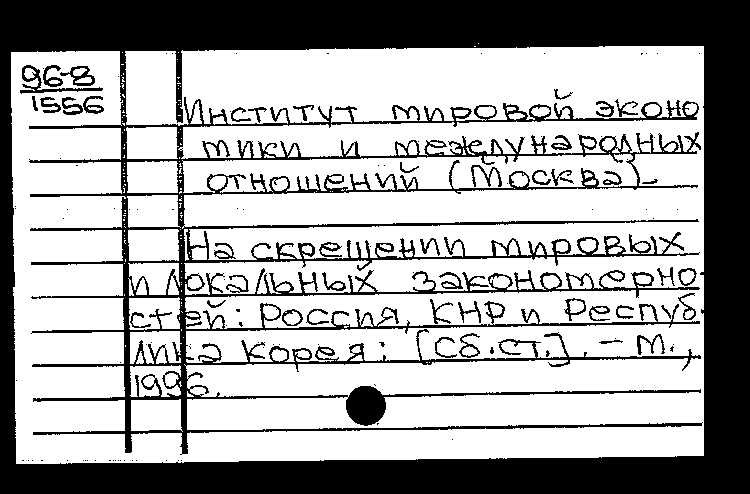 96-8
1556
Институт мировой эконо-
мики и международных
отношений (Москва)
На скрещении мировых
и локальных закономерно-
стей: Россия, КНР и Респуб-
лика Корея: [Сб.ст.]. - М.,
1996.